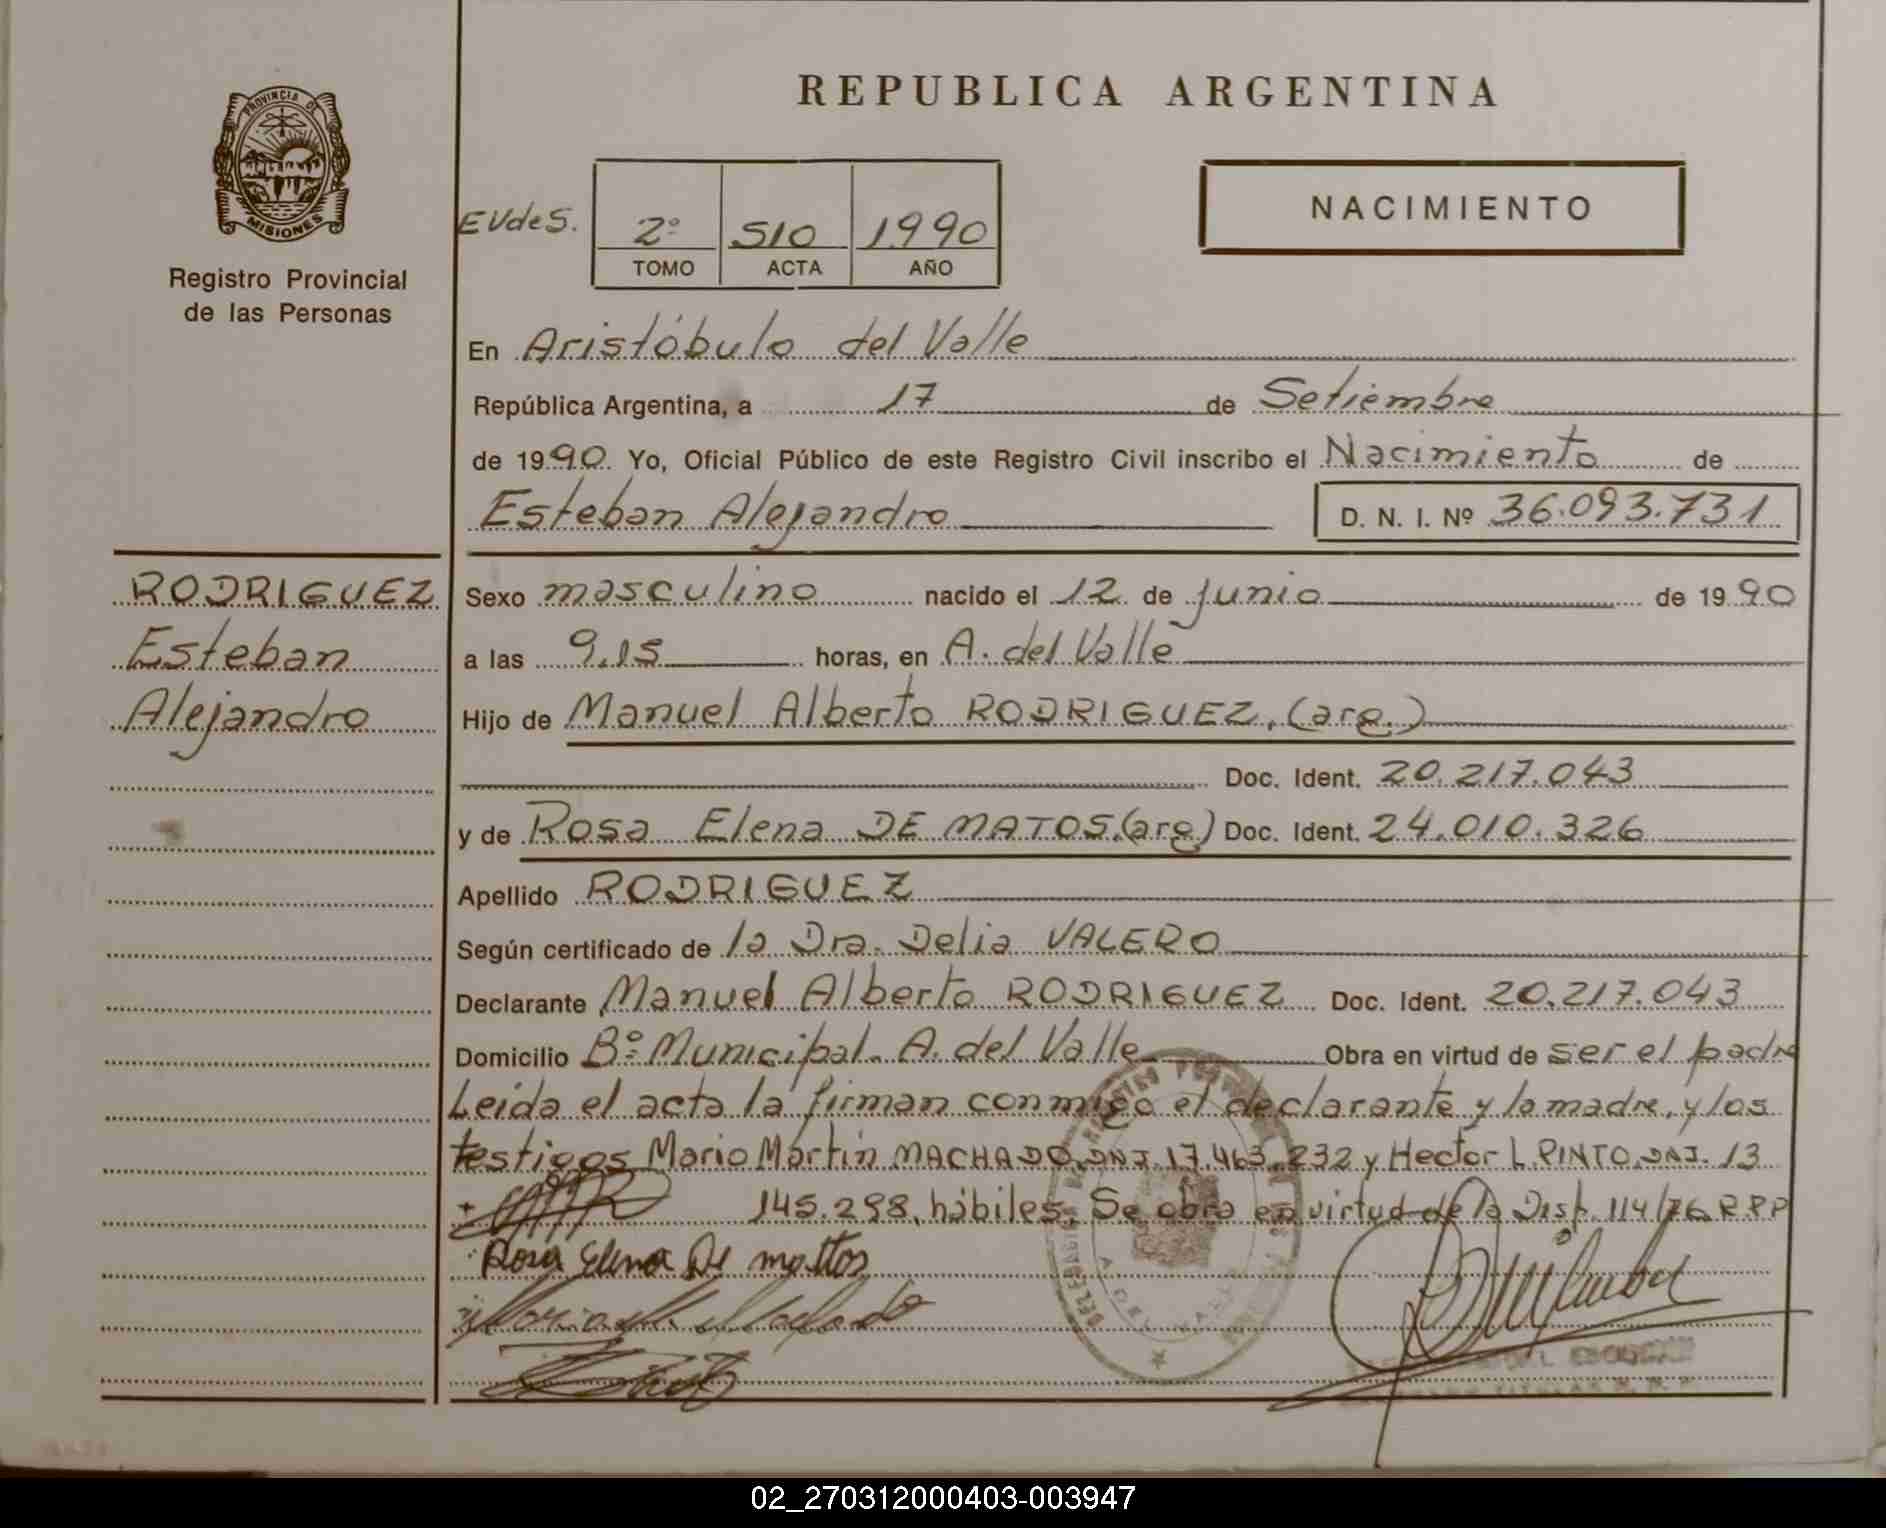 REPUBLICA ARGENTINA
PROVINCIA DE
MISIONES
Registro Provincial
de las Personas
EVdeS.
2º 510 1990
TOMO ACTA AÑO
NACIMIENTO
En Aristóbulo del Valle
República Argentina, a 17 de Setiembre
de 1990. Yo, Oficial Público de este Registro Civil inscribo el Nacimiento de
Esteban Alejandro D. N. I. Nº 36.093.731
RODRIGUEZ
Esteban
Alejandro
Sexo masculino nacido el 12 de junio de 1990
a las 9,15 horas, en A. del Valle
Hijo de Manuel Alberto RODRIGUEZ, (arg.)
Doc. Ident. 20.217.043
y de Rosa Elena DE MATOS,(arg) Doc. Ident. 24.010.326
Apellido RODRIGUEZ
Según certificado de la Dra. Delia VALERO
Declarante Manuel Alberto RODRIGUEZ Doc. Ident. 20.217.043
Domicilio Bº Municipal. A. del Valle Obra en virtud de ser el padre
Leída el acta la firman conmigo el declarante y la madre, y los
testigos Mario Martín MACHADO, DNI. 17.463.232 y Hector L. PINTO, DNI. 13
145.298, hábiles. Se obra en virtud de la Disp. 114/76 R.P.P
Rosa Elena De mattos
02_270312000403-003947